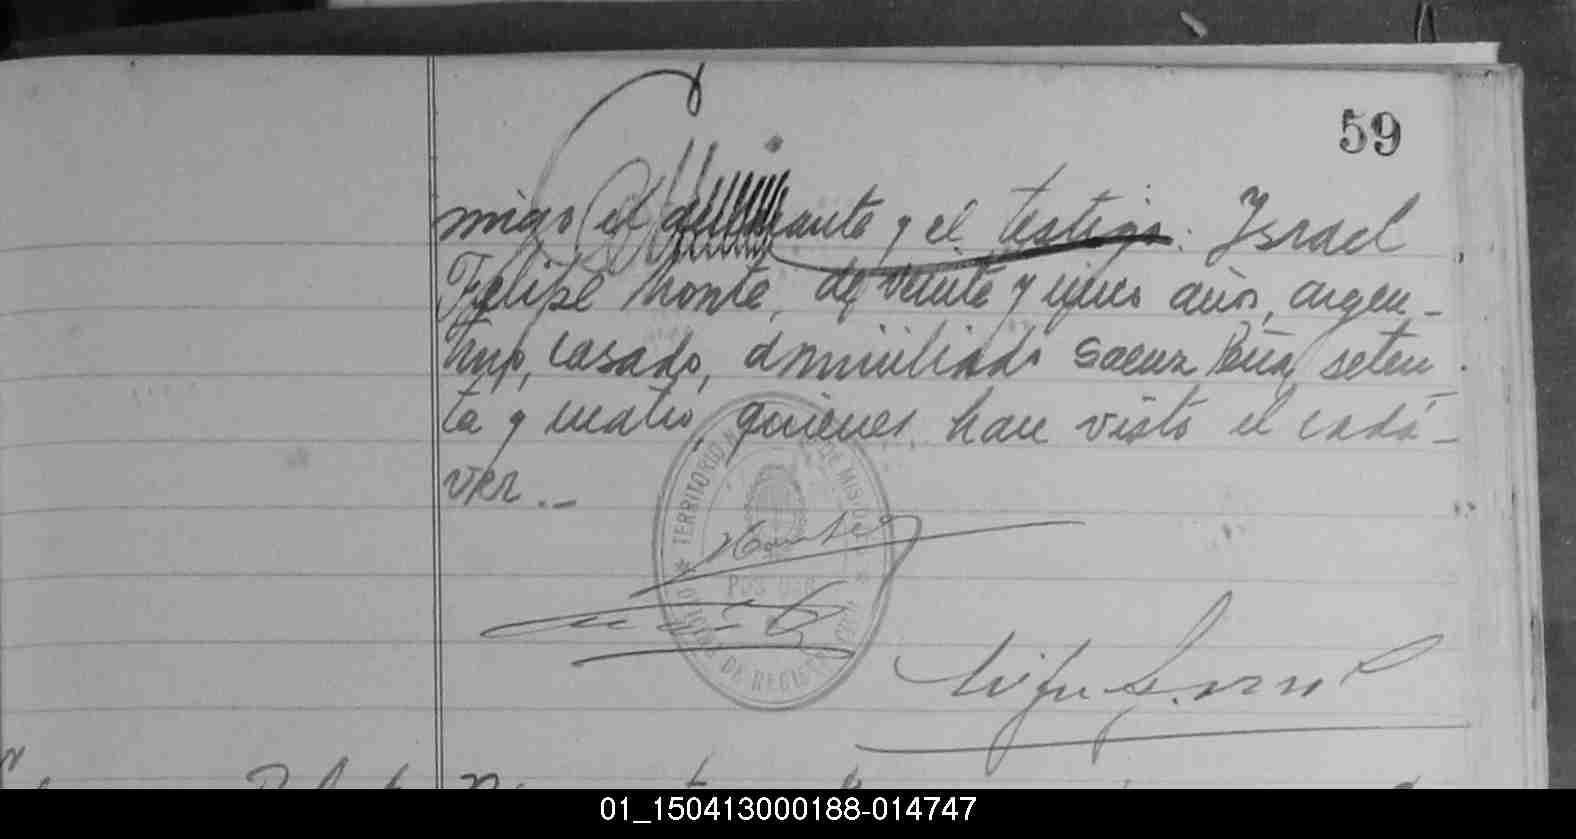 59
migo el declarante y el testigo: Ysrael
Felipe Monte, de veinte y cinco años, argen-
tino, casado, domiciliado Saenz Peña seten
ta y cuatro, quienes han visto el cadá-
ver.-
TERRITORIO DE MISIONES
POSADAS
OFICINA DE REGISTRO CIVIL
01_150413000188-014747